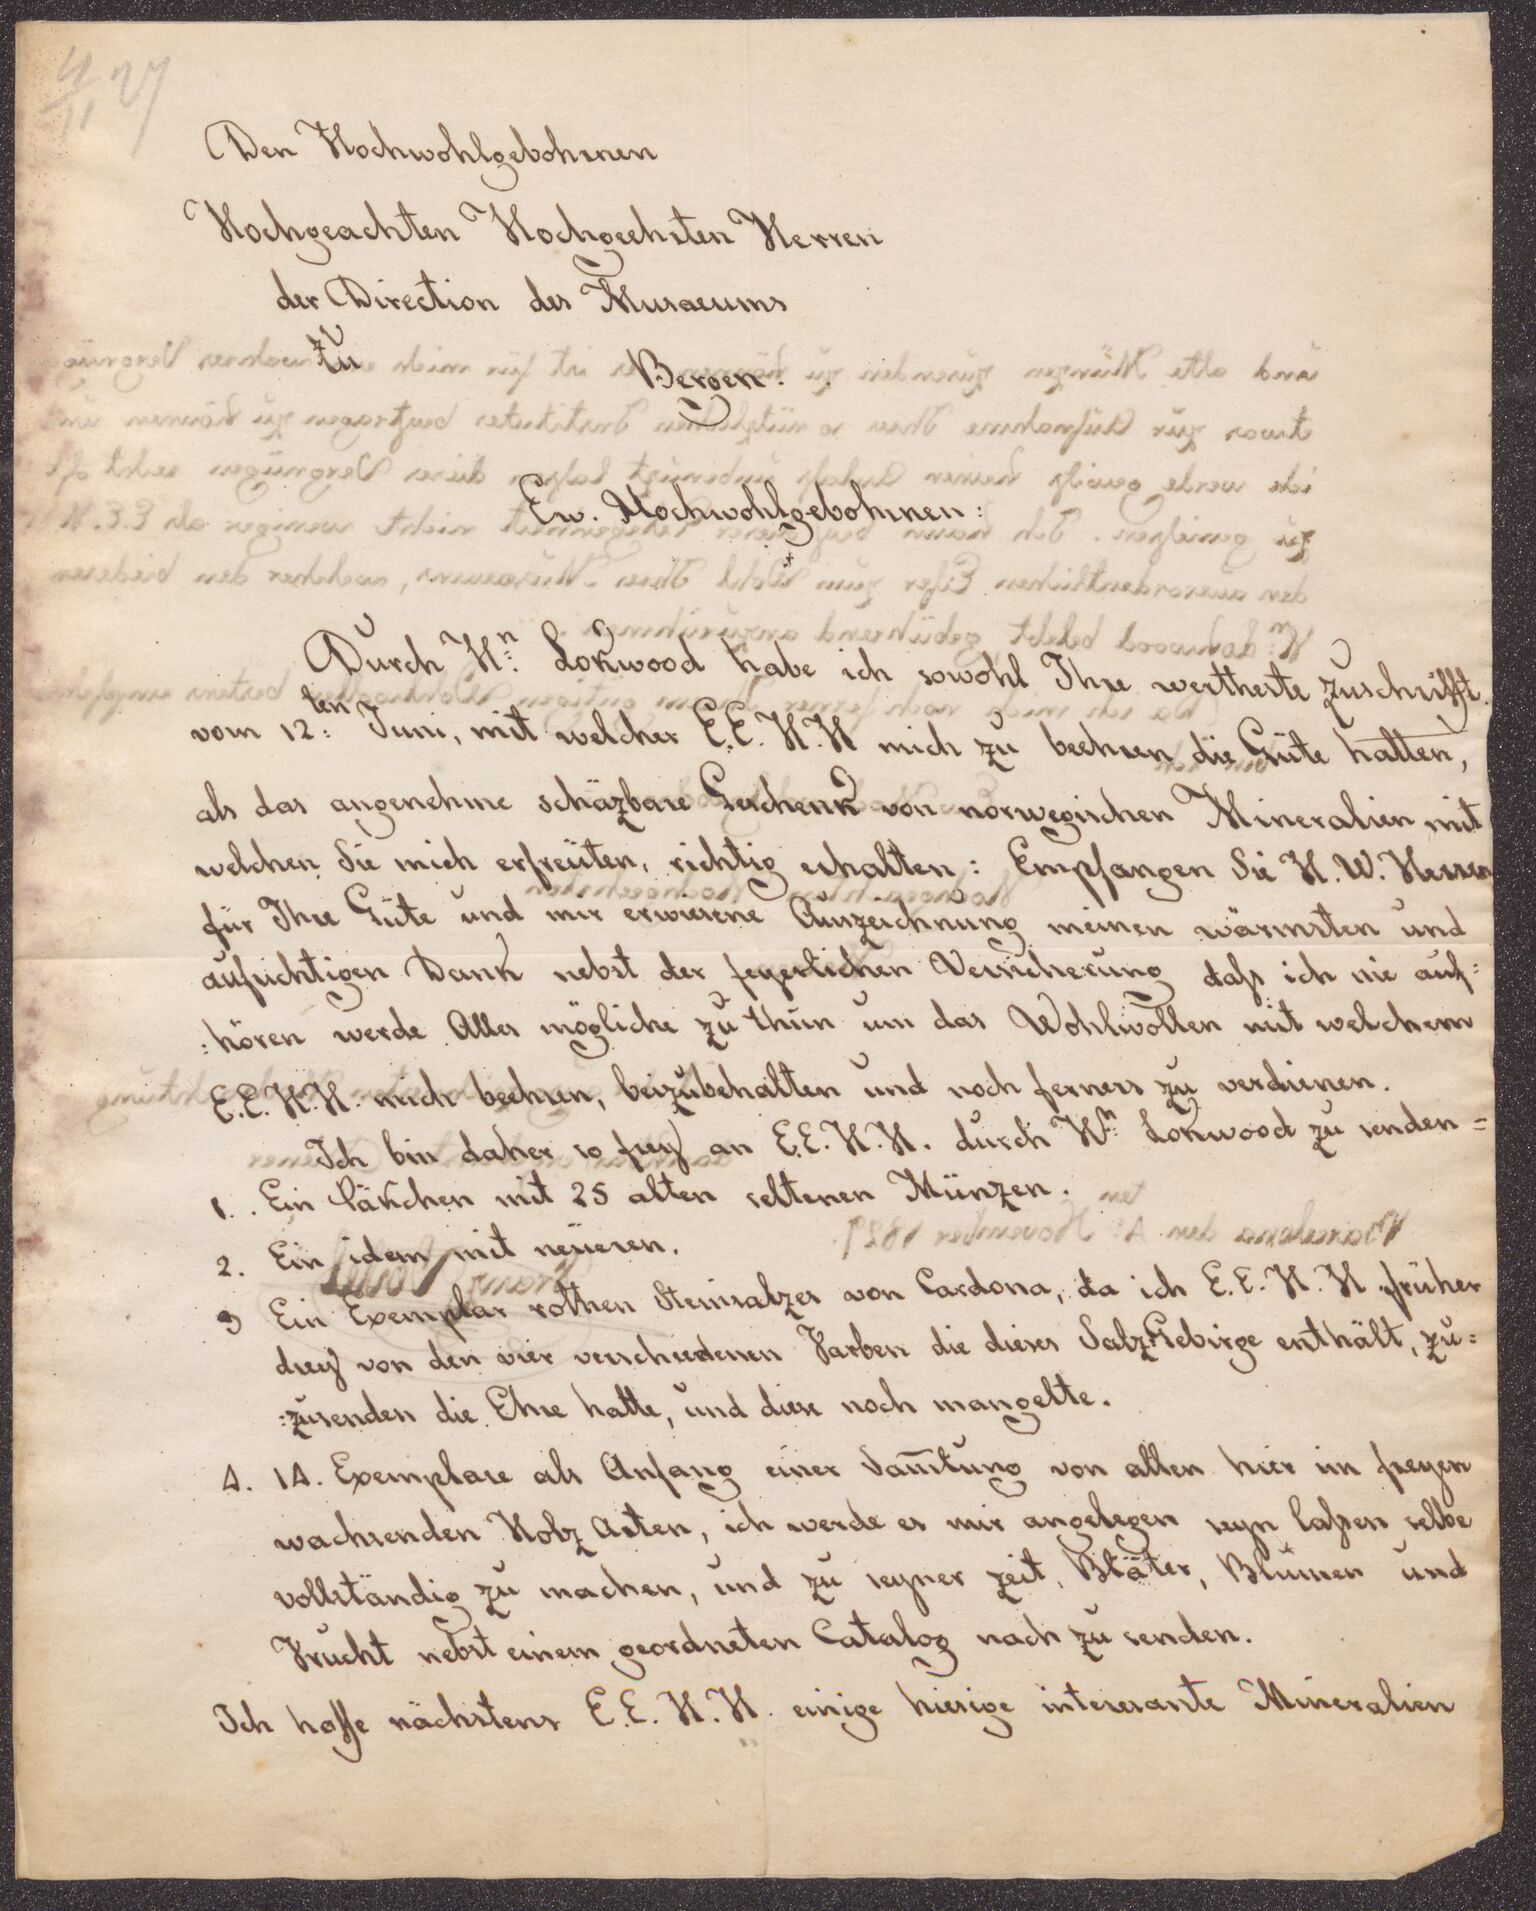 4/11 27
Den Hochwohlgebohrnen
Hochgeachten Hochgeehrten Herren
der Direction des Musaeums
zu
Bergen.
Ew. Hochwohlgebohrnen:
Durch Hn: Lokwood habe ich sowohl Ihre wertheste Zuschrifft
vom 12ten: Juni, mit welcher E.E.H.H mich zu beehren die Güte hatten,
als das angenehme schäzbare Geschenk von norwegischen Mineralien mit
welchen Sie mich erfreüten, richtig erhalten: Empfangen Sie H.W. Herren
für Ihre Güte und mir erwiesene Auszeichnung meinen wärmsten und
aufrichtigen Dank nebst der feyerlichen Versicherung daß ich nie auf:
:hören werde Alles mögliche zu thun um das Wohlwollen mit welchem
E.E.H.H. mich beehren, beizubehalten und noch ferners zu verdienen.
Ich bin daher so frey an E.E.H.H. durch Hn: Lokwood zu senden =
1. Ein Päkchen mit 25 alten seltenen Münzen.
2. Ein idem mit neüeren.
3 Ein Exemplar rothen Steinsalzes von Cardona, da ich E.E.H.H früher
drey von den vier verschiedenen Farben die dieses SalzGebirge enthält, zu:
:zusenden die Ehre hatte, und diese noch mangelte.
4. 14. Exemplare als Anfang einer Samlung von allen hier im freyen
wachsenden Holz Arten, ich werde es mir angelegen seyn laßen selbe
vollständig zu machen, und zu seyner zeit, Bläter, Blumen und
Frucht nebst einem geordneten Catalog nach zu senden.
Ich hoffe nächstens E.E.H.H. einige hiesige interesante Mineralien